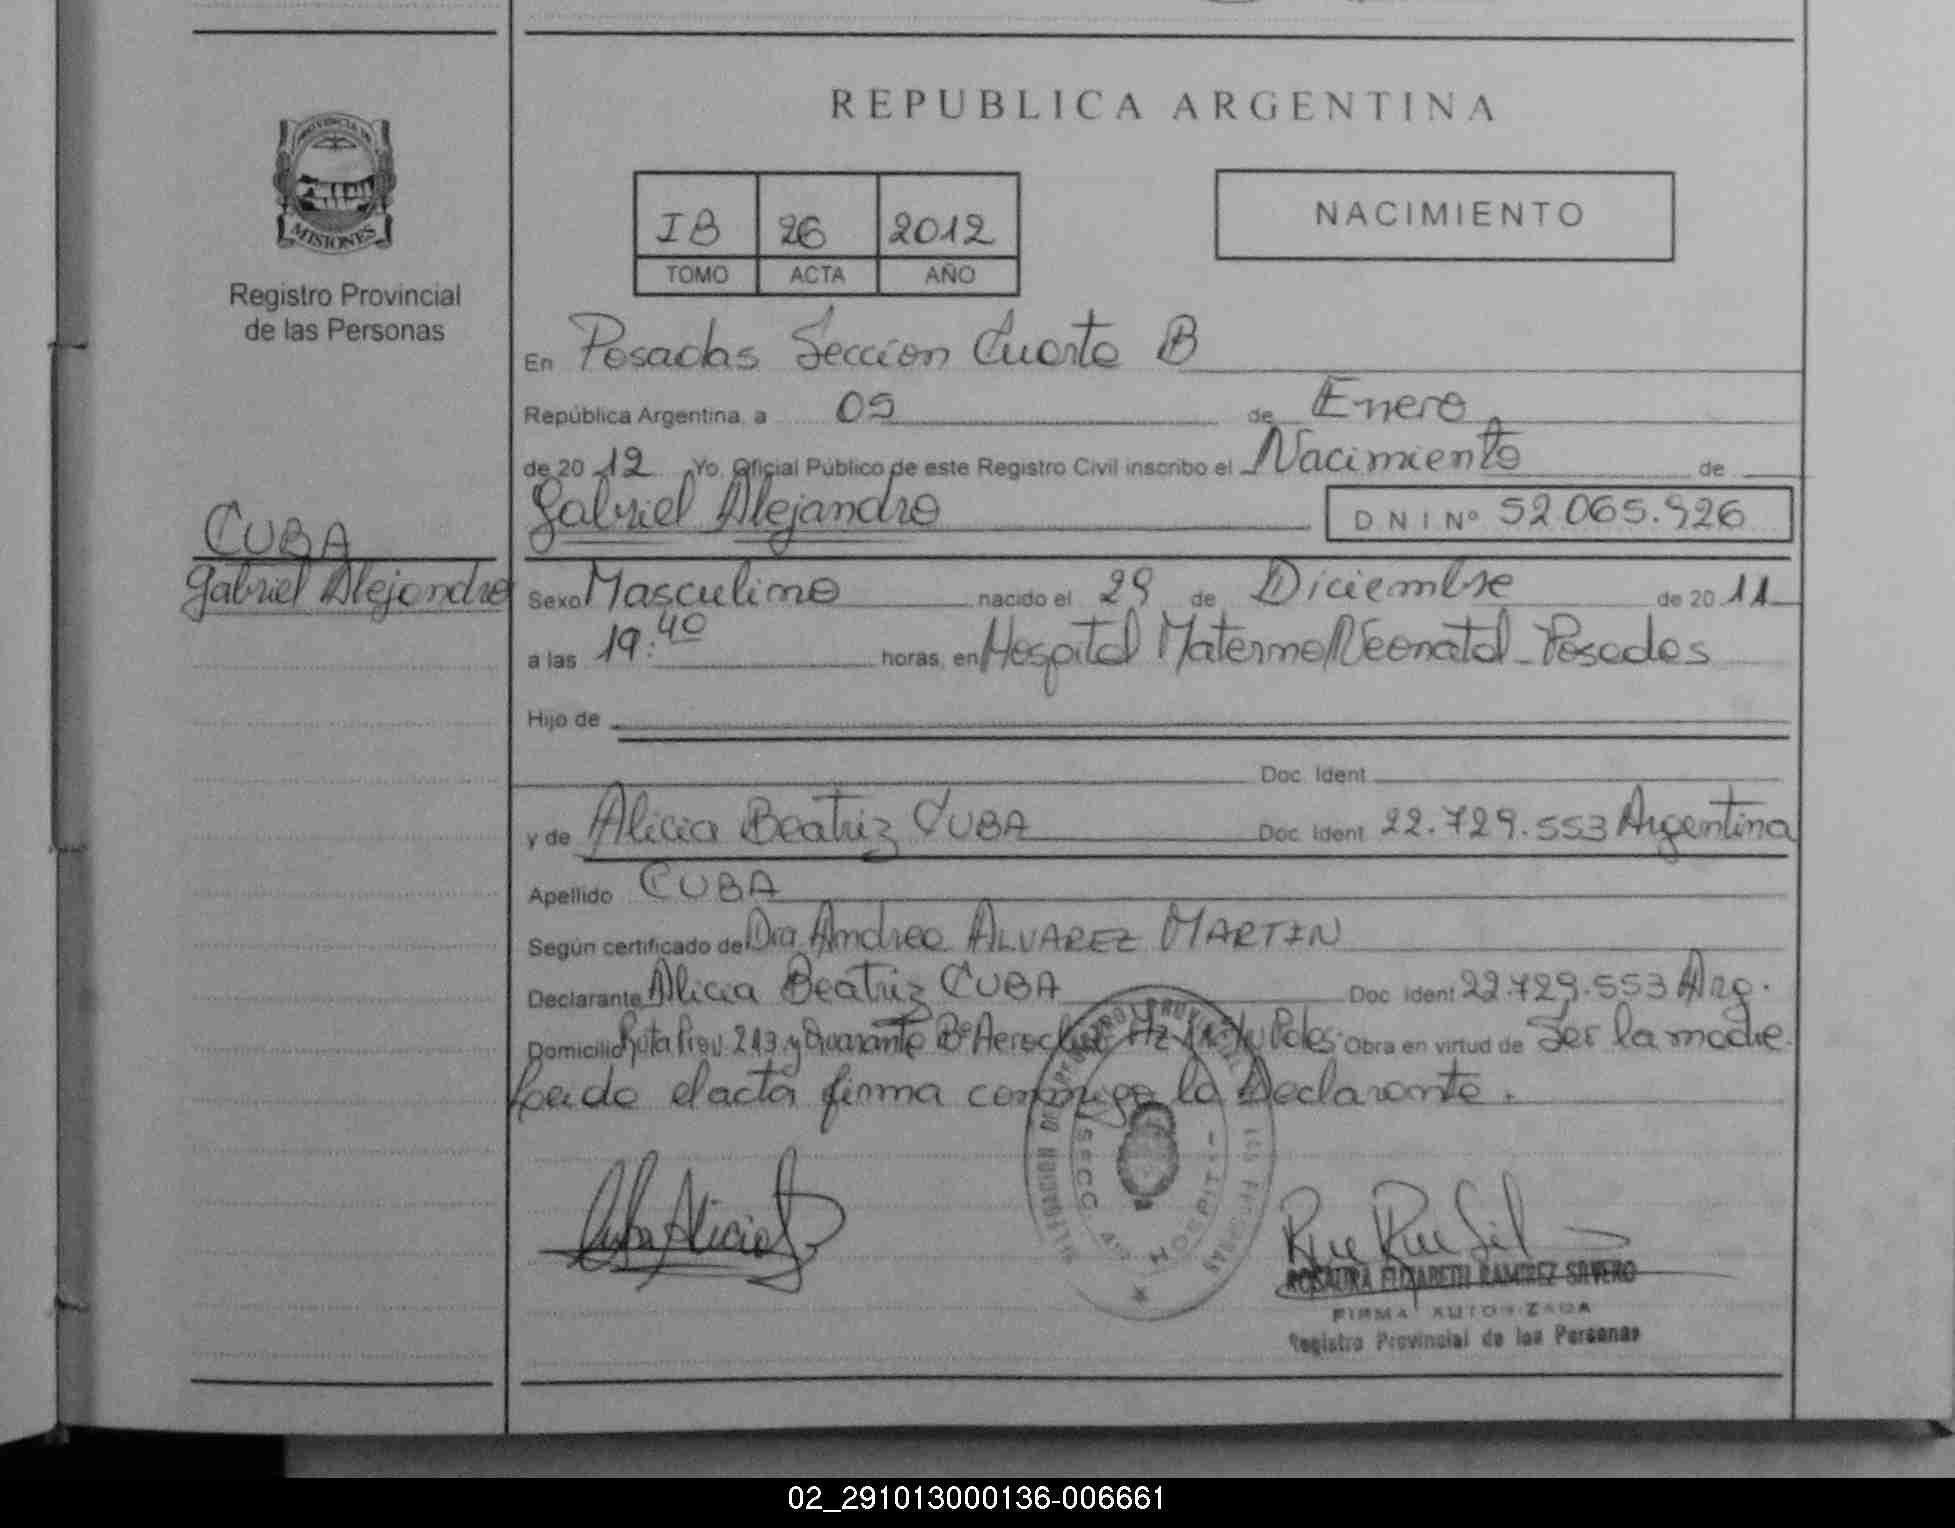 REPUBLICA ARGENTINA
PROVINCIA DE
MISIONES
Registro Provincial
de las Personas
IB 26 2012
TOMO ACTA AÑO
NACIMIENTO
En Posadas Seccion Cuarta B
República Argentina, a 05 de Enero
de 20 12 Yo, Oficial Público de este Registro Civil inscribo el Nacimiento de
Gabriel Alejandro DNI Nº 52.065.926
CUBA
Gabriel Alejandro
Sexo Masculino nacido el 29 de Diciembre de 20 11
a las 19:40 horas, en Hospital Materno Neonatal - Posadas
Hijo de
Doc. Ident.
y de Alicia Beatriz CUBA Doc. Ident. 22.729.553 Argentina
Apellido CUBA
Según certificado de Dra Andrea ALVAREZ MARTIN
Declarante Alicia Beatriz CUBA Doc. Ident 22.729.553 Arg.
Domicilio Ruta Prov. 213 y Bº Obra en virtud de Ser la madre.
Leida el acta firma conmigo la Declarante.
Cuba Alicia B
SECC. HOSPIT
ROSAURA ELIZABETH RAMIREZ SILVERO
FIRMA AUTORIZADA
Registro Provincial de las Personas
02_291013000136-006661